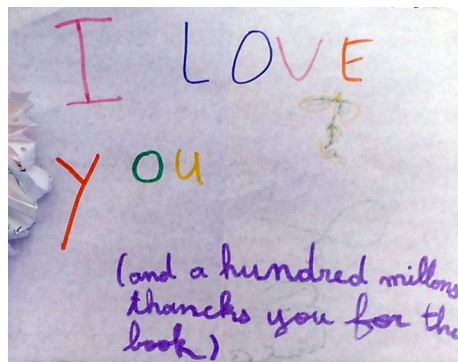 I LOVE
you
(and a hundred millons
thancks you for the
book)